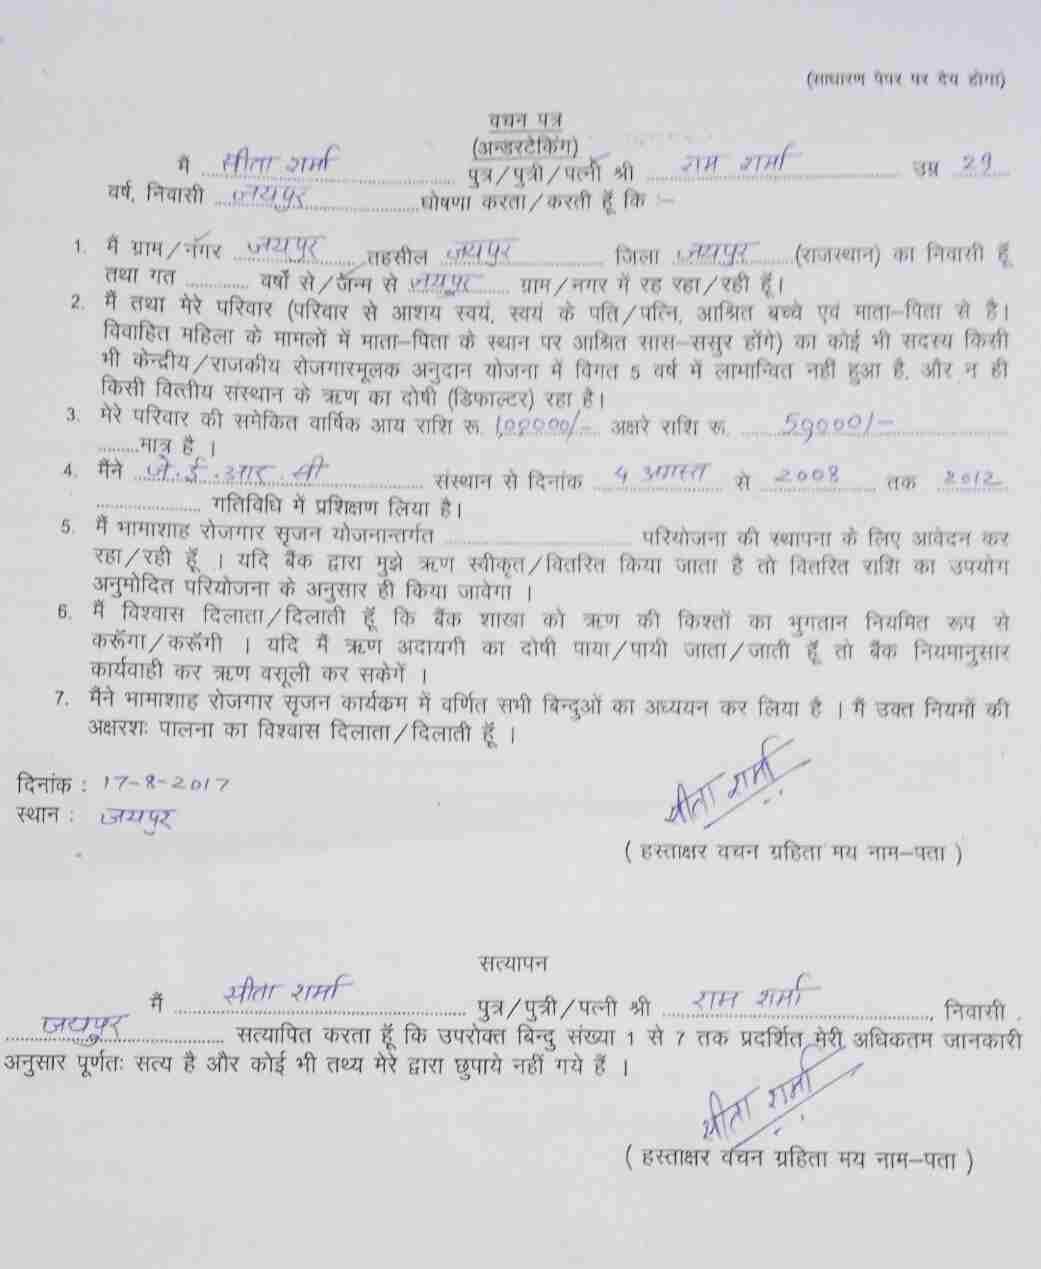 (साधारण पेपर पर देय होगा)
वचन पत्र
(अन्डरटेकिंग)
मैं सीता शर्मा पुत्र/पुत्री/पत्नी श्री राम शर्मा उम्र 29
वर्ष, निवासी जयपुर घोषणा करता/करती हूँ कि :–
1. मैं ग्राम/नगर जयपुर तहसील जयपुर जिला जयपुर (राजस्थान) का निवासी हूँ
तथा गत ............ वर्षों से/जन्म से जयपुर ग्राम/नगर में रह रहा/रही हूँ।
2. मैं तथा मेरे परिवार (परिवार से आशय स्वयं, स्वयं के पति/पत्नि, आश्रित बच्चे एवं माता–पिता से है।
विवाहित महिला के मामलों में माता–पिता के स्थान पर आश्रित सास–ससुर होंगे) का कोई भी सदस्य किसी
भी केन्द्रीय/राजकीय रोजगारमूलक अनुदान योजना में विगत 5 वर्ष में लाभान्वित नहीं हुआ है, और न ही
किसी वित्तीय संस्थान के ऋण का दोषी (डिफाल्टर) रहा है।
3. मेरे परिवार की समेकित वार्षिक आय राशि रू. 1,00000/- अक्षरे राशि रू. 50000/-
.........मात्र है ।
4. मैंने जे.ई.आर.सी संस्थान से दिनांक 4 अगस्त से 2008 तक 2012
.................... गतिविधि में प्रशिक्षण लिया है।
5. मैं भामाशाह रोजगार सृजन योजनान्तर्गत ................................ परियोजना की स्थापना के लिए आवेदन कर
रहा/रही हूँ । यदि बैंक द्वारा मुझे ऋण स्वीकृत/वितरित किया जाता है तो वितरित राशि का उपयोग
अनुमोदित परियोजना के अनुसार ही किया जावेगा ।
6. मैं विश्वास दिलाता/दिलाती हूँ कि बैंक शाखा को ऋण की किश्तों का भुगतान नियमित रूप से
करूँगा/करूँगी । यदि मैं ऋण अदायगी का दोषी पाया/पायी जाता/जाती हूँ तो बैंक नियमानुसार
कार्यवाही कर ऋण वसूली कर सकेगें ।
7. मैंने भामाशाह रोजगार सृजन कार्यकम में वर्णित सभी बिन्दुओं का अध्ययन कर लिया है । मैं उक्त नियमों की
अक्षरशः पालना का विश्वास दिलाता/दिलाती हूँ ।
दिनांक : 17-8-2017
स्थान : जयपुर
सीता शर्मा
( हस्ताक्षर वचन ग्रहिता मय नाम–पता )
सत्यापन
मैं सीता शर्मा पुत्र/पुत्री/पत्नी श्री राम शर्मा, निवासी
जयपुर सत्यापित करता हूँ कि उपरोक्त बिन्दु संख्या 1 से 7 तक प्रदर्शित मेरी अधिकतम जानकारी
अनुसार पूर्णतः सत्य है और कोई भी तथ्य मेरे द्वारा छुपाये नहीं गये हैं ।
सीता शर्मा
( हस्ताक्षर वचन ग्रहिता मय नाम–पता )